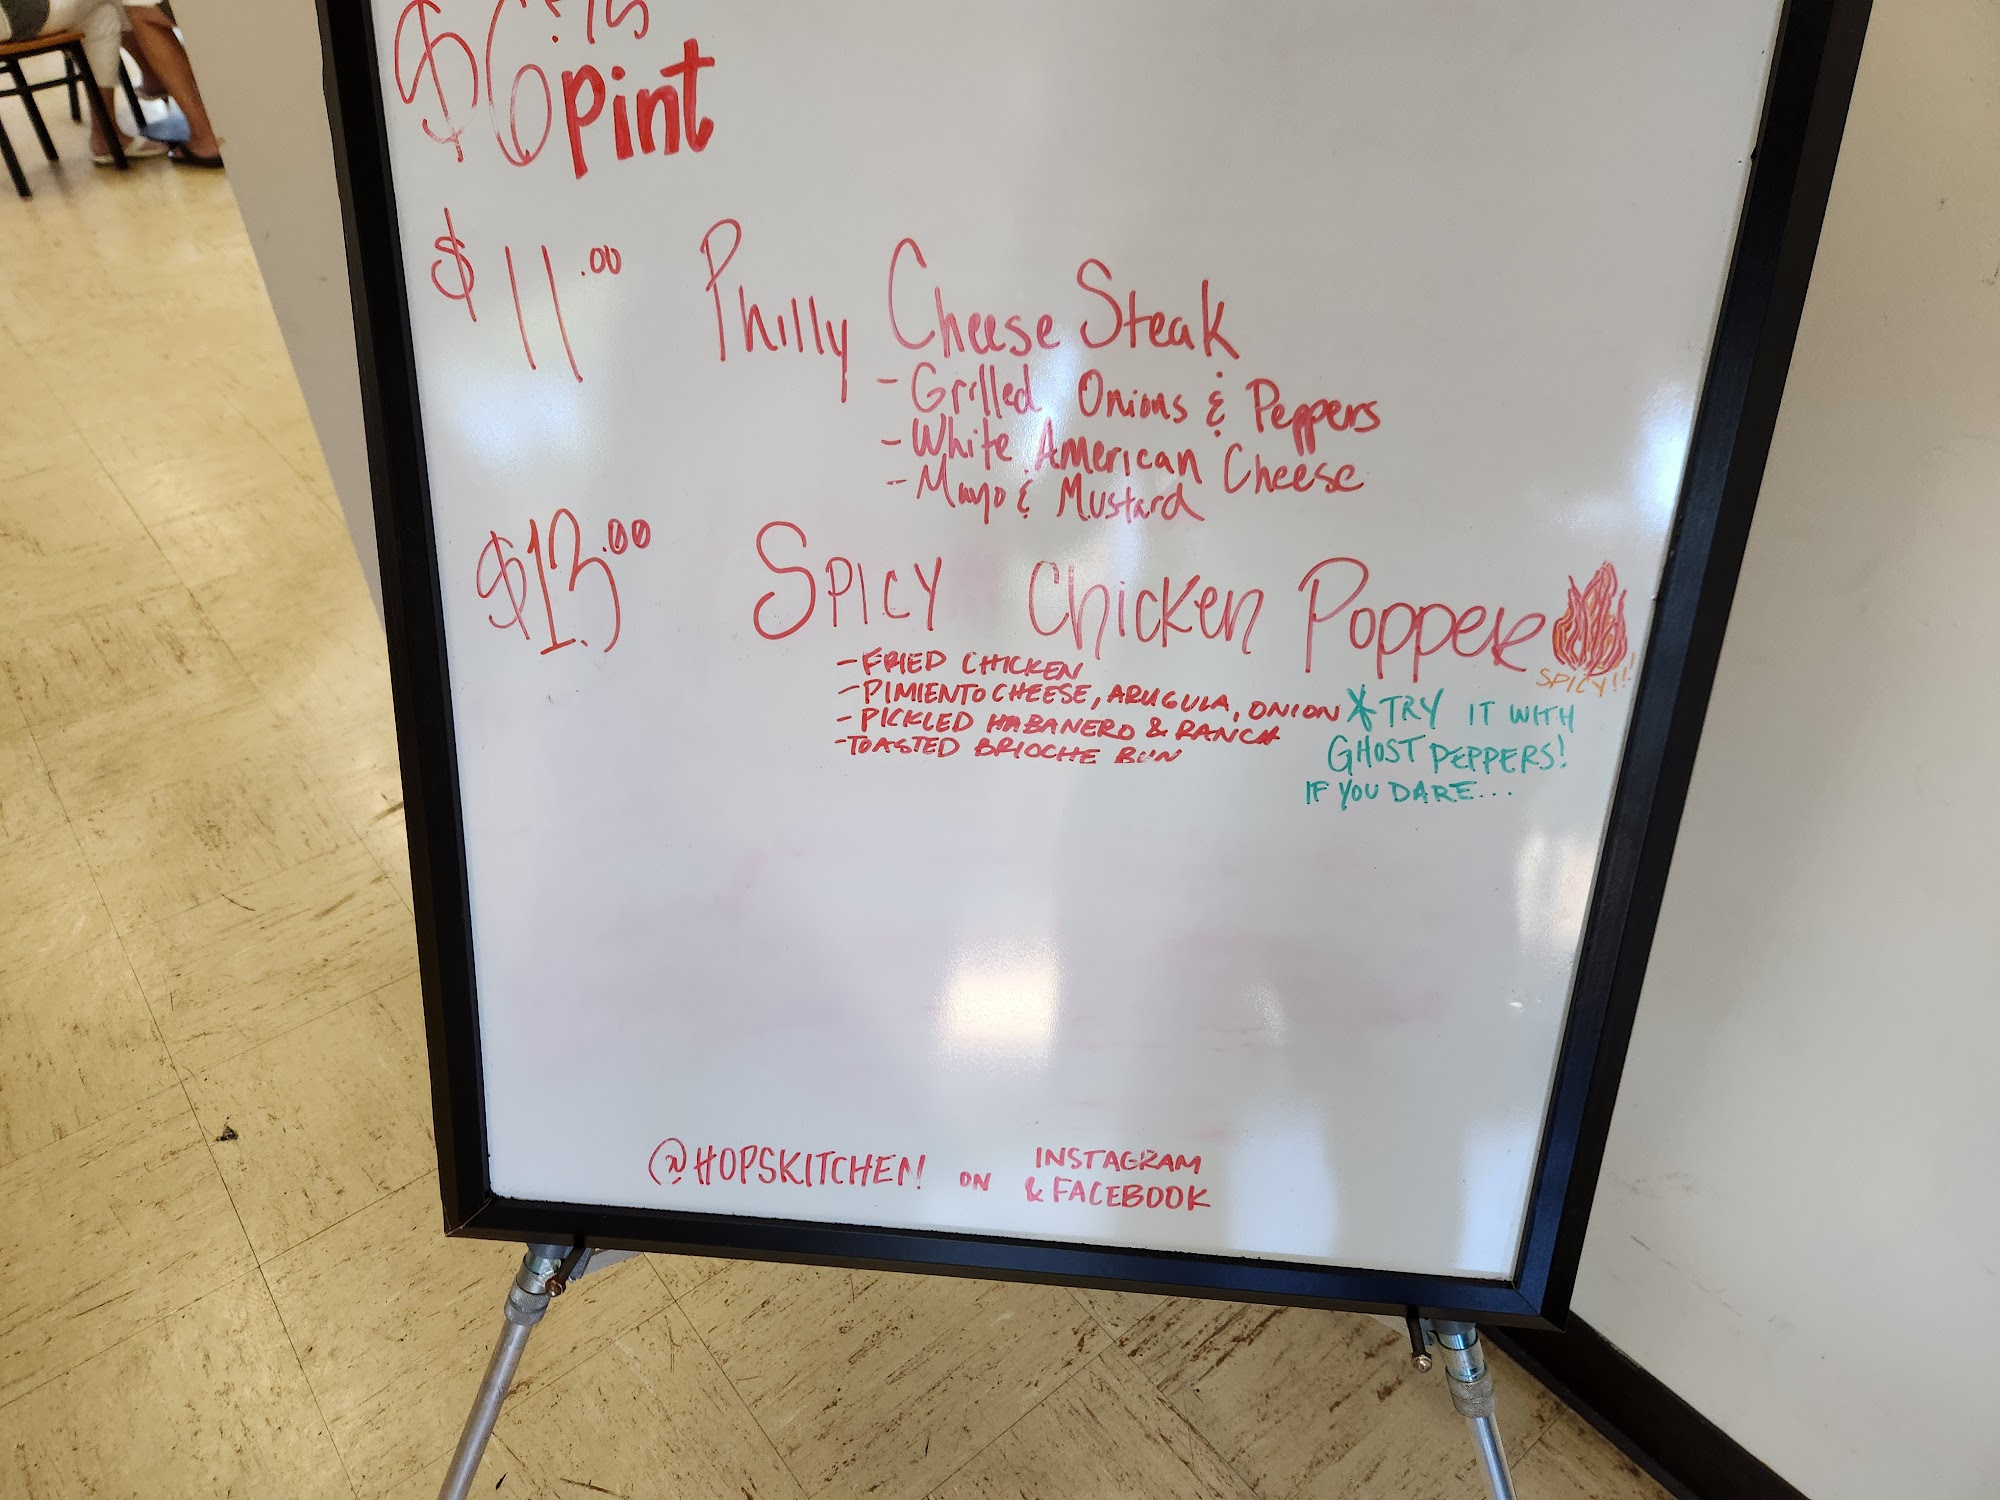 $6 pint
$11.00 Philly Cheese Steak
- Grilled Onions & Peppers
- White American Cheese
- Mayo & Mustard
$13.00 SPICY Chicken Popper
SPICY!!!
- FRIED CHICKEN
- PIMIENTO CHEESE, ARUGULA, ONION
- PICKLED HABANERO & RANCH
- TOASTED BRIOCHE BUN
* TRY IT WITH
GHOST PEPPERS!
IF YOU DARE...
@HOPSKITCHEN ON INSTAGRAM
& FACEBOOK